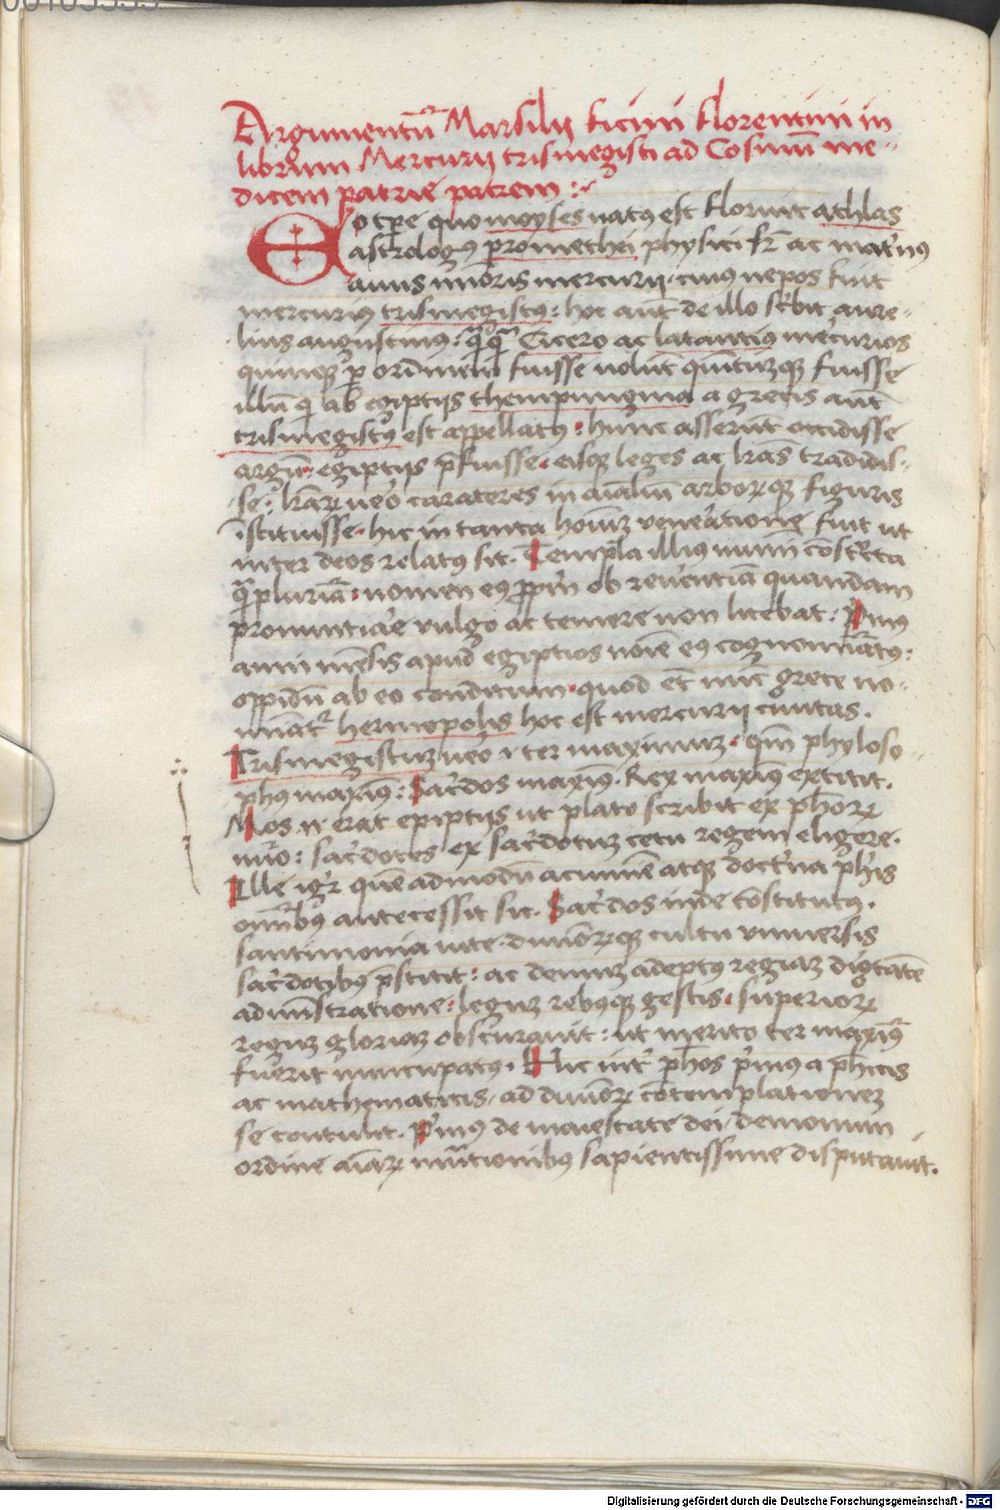 Argumentū Marsilij ficini florentini in
librum Mercurij trismegisti ad Cosmū me-
dicem patrie patrem :
Eo tpe quo moyses natꝰ est floruit athlas
astrologꝰ promethei physici fr̄ ac mat'nꝰ
auus maioris mercurij. cuiꝰ nepos fuit
mercuriꝰ trismegistꝰ: hoc aūt de illo sc'bit aure-
lius augustinus: q̄q̄ Cicero ac latantiꝰ mercurios
quinqꝫ p ordinem fuisse uolūt quītūqꝫ fuisse
illū q ab egiptijs thempungma a grecis aūt
trismegistꝰ est appellatꝰ: hunc asserūt occidisse
argū. egiptijs p̄fuisse. eisqꝫ leges ac lr̄as tradidis-
se: lr̄aꝝ ueo carateres in aīaliū arboꝝqꝫ figuris
īstituisse. hic in tanta hoīuꝫ ueneratione fuit ut
inter deos relatꝰ sit. Templa illiꝰ numī cōstr̄cta
q̄plurīa. nomen eꝰ ꝓpriū ob reuerentiā quandam
pronuntiare vulgo ac temere non licebat: Primꝰ
anni mēsis apud egiptios noīe eꝰ cognomīatꝰ:
oppidū ab eo conditum. quod et nūc grece no-
minatr hermopolis hoc est mercurij ciuitas.
Trismegistuꝫ ueo i ter maximuꝫ. qm̄ phyloso-
phꝰ maximꝰ: Sacerdos maximꝰ. Rex maximꝰ extitit.
Mos n̄ erat epiptijs ut plato scribit ex ph̄oꝝ
nuo: sacerdotes ex sacerdotuꝫ cetu regem eligere.
Ille igr̄ quē admodū acumine atqꝫ doctrina ph̄is
omībꝰ antecessit sic. Sacerdos inde cōstitutꝰ.
santimonia uite. diuinoꝝqꝫ cultu vniuersis
sacerdotibꝰ p̄stitit: ac demuꝫ adeptꝰ regiaꝫ digtatē
adminstratione: leguꝫ rebꝰqꝫ gestis. superioꝝ
reguꝫ gloriaꝫ obscurauit: ut merito ter maximꝰ
fuerit nuncupatꝰ. Hic int' ph̄os p'mus a phīcis
ac mathematicis, ad diuinoꝝ cōtemplationeꝫ
se contulit. P'mꝰ de maiestate dei demonum
ordine aīaꝝ mutationibꝰ sapientissime disputauit.
Digitalisierung gefördert durch die Deutsche Forschungsgemeinschaft - DFG